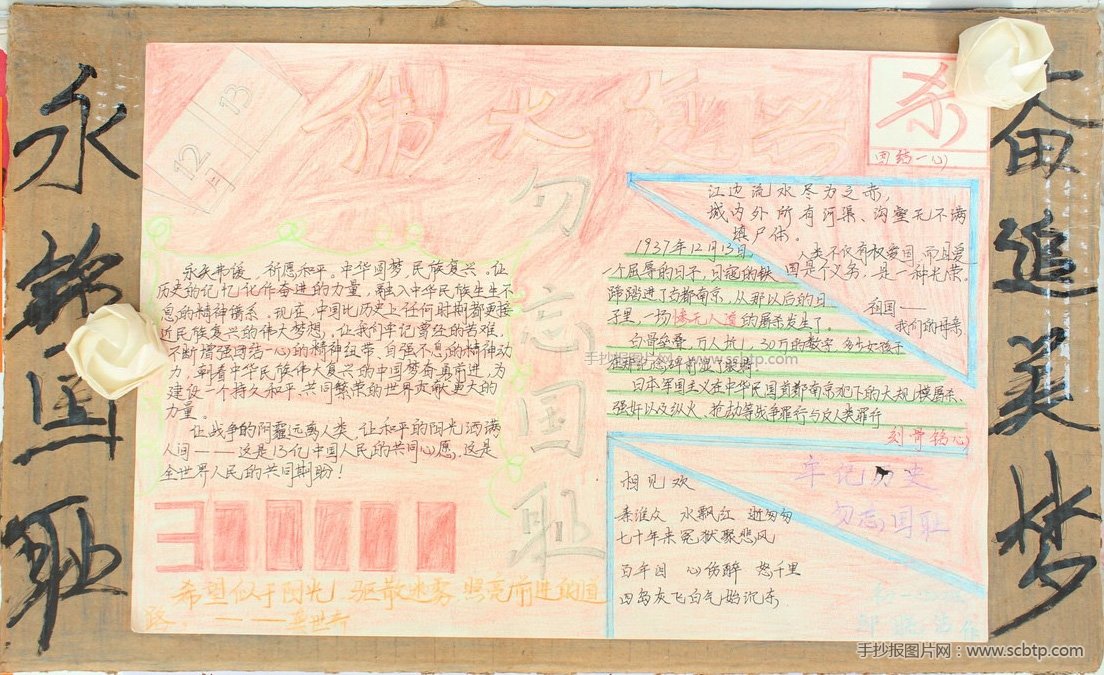 永
国
耻
奋
追
美
梦
12月
13
伟大复兴
团结一心
勿忘国耻
永矢弗谖，祈愿和平。中华圆梦，民族复兴。让
历史的记忆化作奋进的力量，融入中华民族生生不
息的精神谱系。现在，中国比历史上任何时期都更接
近民族复兴的伟大梦想，让我们牢记曾经的苦难，
不断增强团结一心的精神纽带、自强不息的精神动
力，朝着中华民族伟大复兴的中国梦奋勇前进，为
建设一个持久和平、共同繁荣的世界贡献更大的
力量。
让战争的阴霾远离人类，让和平的阳光洒满
人间——这是13亿中国人民的共同心愿，这是
全世界人民的共同期盼！
希望似于阳光 驱散迷雾 照亮前进的道
路。———
江边流水尽为之赤，
城内外所有河渠、沟壑无不满
填尸体。
1937年12月13日，
一个屈辱的日子，日寇的铁
蹄踏进了古都南京，从那以后的日
子里，一场惨无人道的屠杀发生了。
白骨垒叠，万人坑，30万的数字
日本军国主义在中华民国首都南京犯下的大规模屠杀、
强奸以及纵火、抢劫等战争罪行与反人类罪行
刻骨铭心
人类不仅有权爱国，而且爱
国是个义务，是一种光荣。
祖国——
我们的母亲
牢记历史
勿忘国耻
相见欢
秦淮 水飘红 逝匆匆
七十年来冤狱聚悲风
百年 心伤醉 愁千里
四岛灰飞白气始沉东
手抄报图片网 www.scbtp.com
手抄报图片网：www.scbtp.com